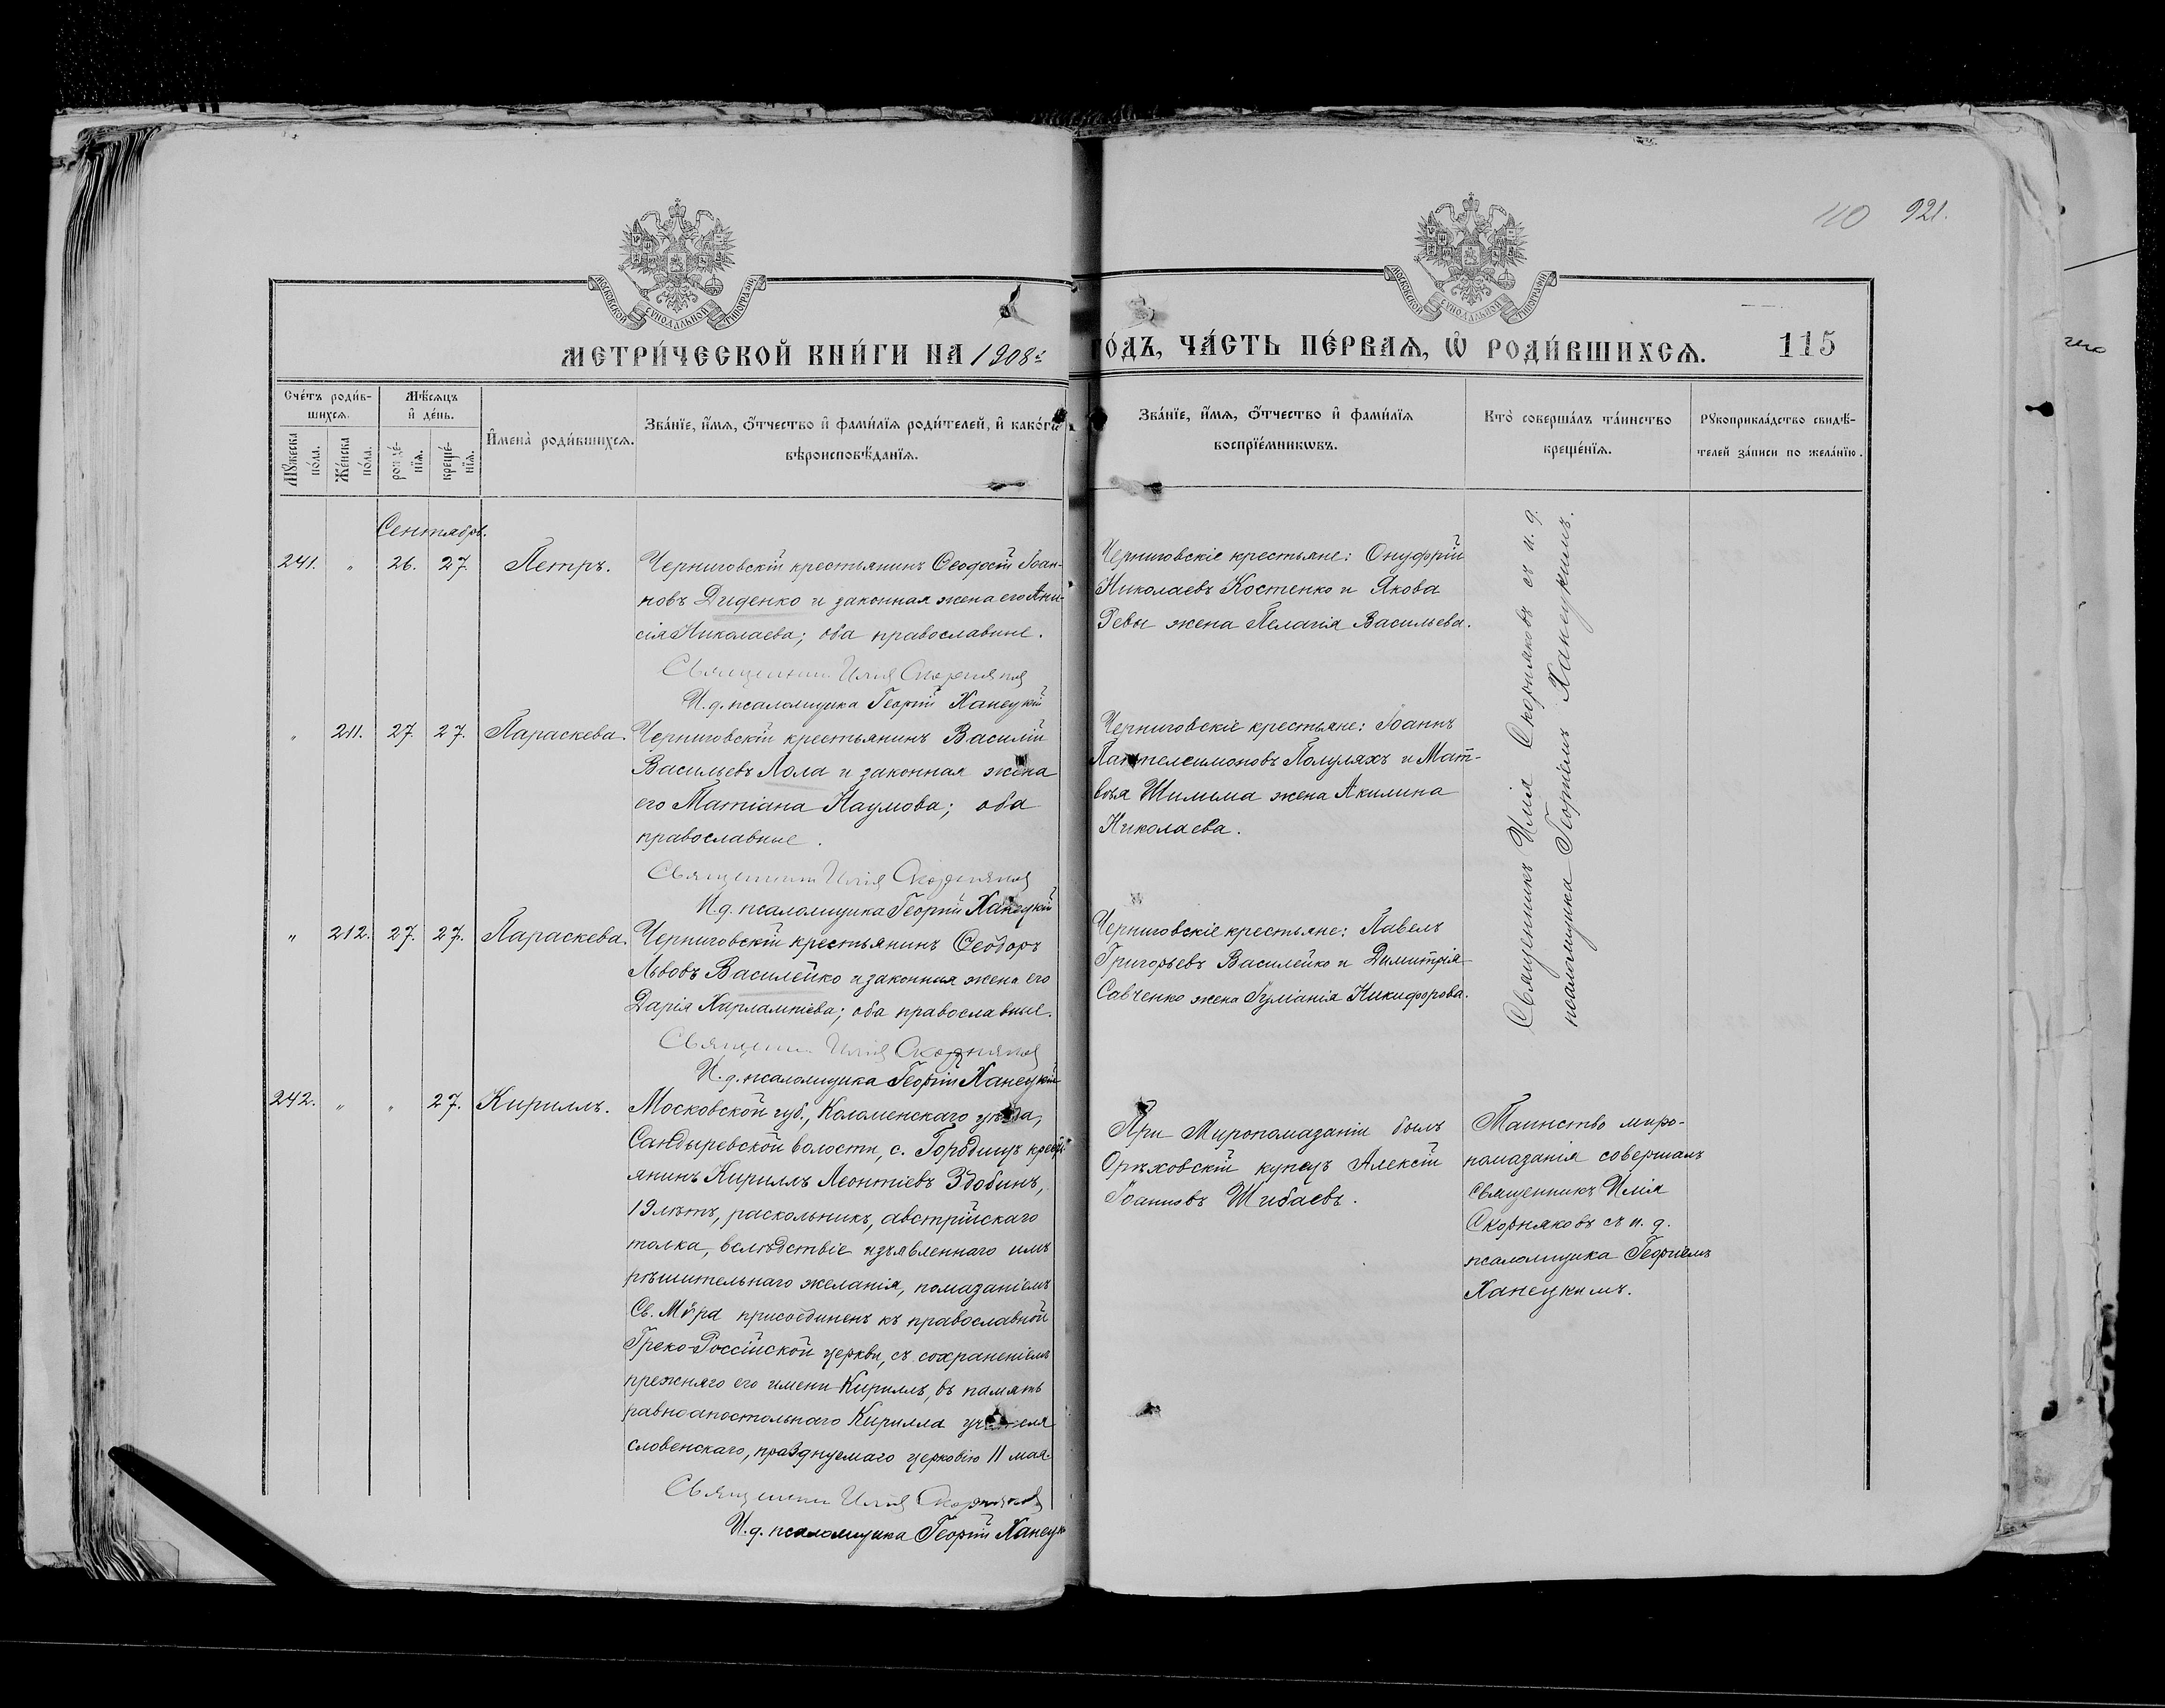 110 921.
МОСКОВСКОЙ СѴНОДАЛЬНОЙ ТИПОГРАФІИ
МОСКОВСКОЙ СѴНОДАЛЬНОЙ ТИПОГРАФІИ
МЕТРИ́ЧЕСКОЙ КНИ́ГИ НА 1908й ГО́ДЪ, ЧА́СТЬ ПЕ́РВАѦ, Ѡ҆ РОДИ́ВШИХСѦ. 115
Сче́тъ роди́в-
шихсѧ.
Мꙋ́жеска по́ла.
Же́нска по́ла.
Мѣ́сѧцъ
и҆ де́нь.
рожде́-
нїѧ.
креще́-
нїѧ.
И҆мена̀ роди́вшихсѧ.
Зва́нїе, и҆́мѧ, ѻ҆́тчество и҆ фами́лїѧ роди́телей, и҆ како́гѡ
вѣроисповѣ́данїѧ.
Зва́нїе, и҆́мѧ, ѻ҆́тчество и҆ фами́лїѧ
воспрїе́мникѡвъ.
Кто̀ соверша́лъ та́инство
креще́нїѧ.
Рꙋкоприкла́дство свидѣ́-
телей за́писи по жела́нїю.
Сентябрь.
241. " 26. 27. Петръ.
Черниговскій крестьянинъ Ѳеодосій Іоан-
новъ Диденко и законная жена его Ани-
сія Николаева; оба православные.
Священникъ Илія Скорняковъ
И. д. псаломщика Георгій Ханецкій
Черниговскіе крестьяне: Онуфрій
Николаевъ Костенко и Якова
Ревы жена Пелагія Васильева.
Священникъ Илія Скорняковъ съ и. д.
псаломщика Георгіемъ Ханецкимъ.
" 211. 27. 27. Параскева.
Черниговскій крестьянинъ Василій
Васильевъ Лола и законная жена
его Татіана Наумова; оба
православные.
Священникъ Илія Скорняковъ
И. д. псаломщика Георгій Ханецкій
Черниговскіе крестьяне: Іоаннъ
Пантелеимоновъ Полуляхъ и Мат-
вѣя Шильма жена Акилина
Николаева.
" 212. 27. 27. Параскева.
Черниговскій крестьянинъ Ѳеодоръ
Львовъ Василейко и законная жена его
Дарія Харлампіева; оба православные.
Священникъ Илія Скорняковъ
И. д. псаломщика Георгій Ханецкій
Черниговскіе крестьяне: Павелъ
Григорьевъ Василейко и Димитрія
Савченко жена Іуліанія Никифорова.
242. " " 27. Кириллъ.
Московской губ., Коломенскаго уѣзда,
Сандыревской волости, с. Городищъ крестьь-
янинъ Кириллъ Леонтіевъ Здобинъ,
19 лѣтъ, раскольникъ, австрійскаго
толка, вслѣдствіе изъявленнаго имъ
рѣшительнаго желанія, помазаніемъ
Св. Мѵра присоединенъ къ православной
Греко-Россійской церкви, съ сохраненіемъ
прежняго его имени Кириллъ, въ память
равноапостольнаго Кирилла учителя
словенскаго, празднуемаго церковію 11 мая.
Священникъ Илія Скорняковъ
И. д. псаломщика Георгій Ханецк
При Миропомазаніи былъ
Орѣховскій купецъ Алексій
Іоанновъ Шибаевъ.
Таинство миро-
помазанія совершалъ
Священникъ Илія
Скорняковъ съ и. д.
псаломщика Георгіемъ
Ханецкимъ.